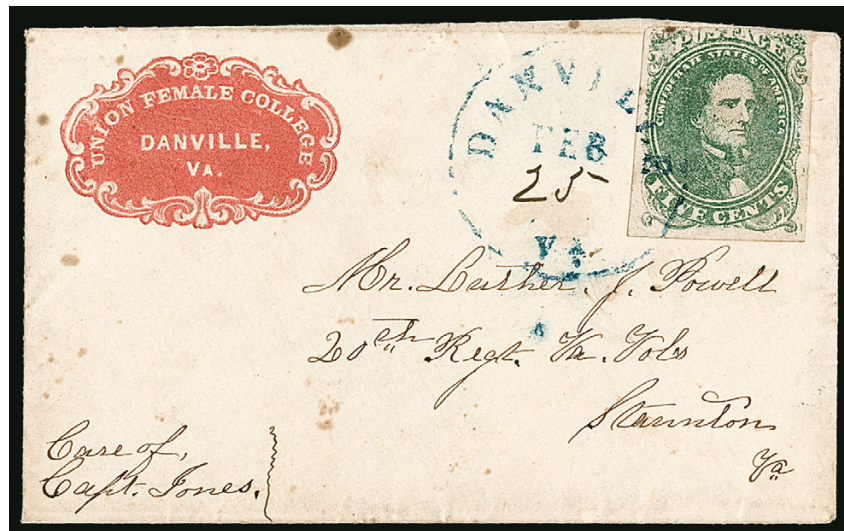 UNION FEMALE COLLEGE
DANVILLE,
VA.
DANVILLE
FEB
25
VA
POSTAGE
CONFEDERATE STATES OF AMERICA
FIVE CENTS
Mr. Luther. J. Powell
20th Regt. Va. Vols
Staunton
Va
Care of,
Capt. Jones.